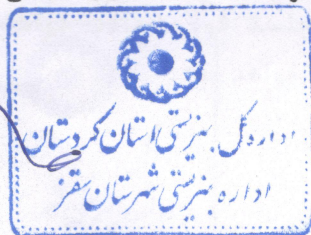 اداره کل بهزیستی استان کردستان
اداره بهزیستی شهرستان سقز